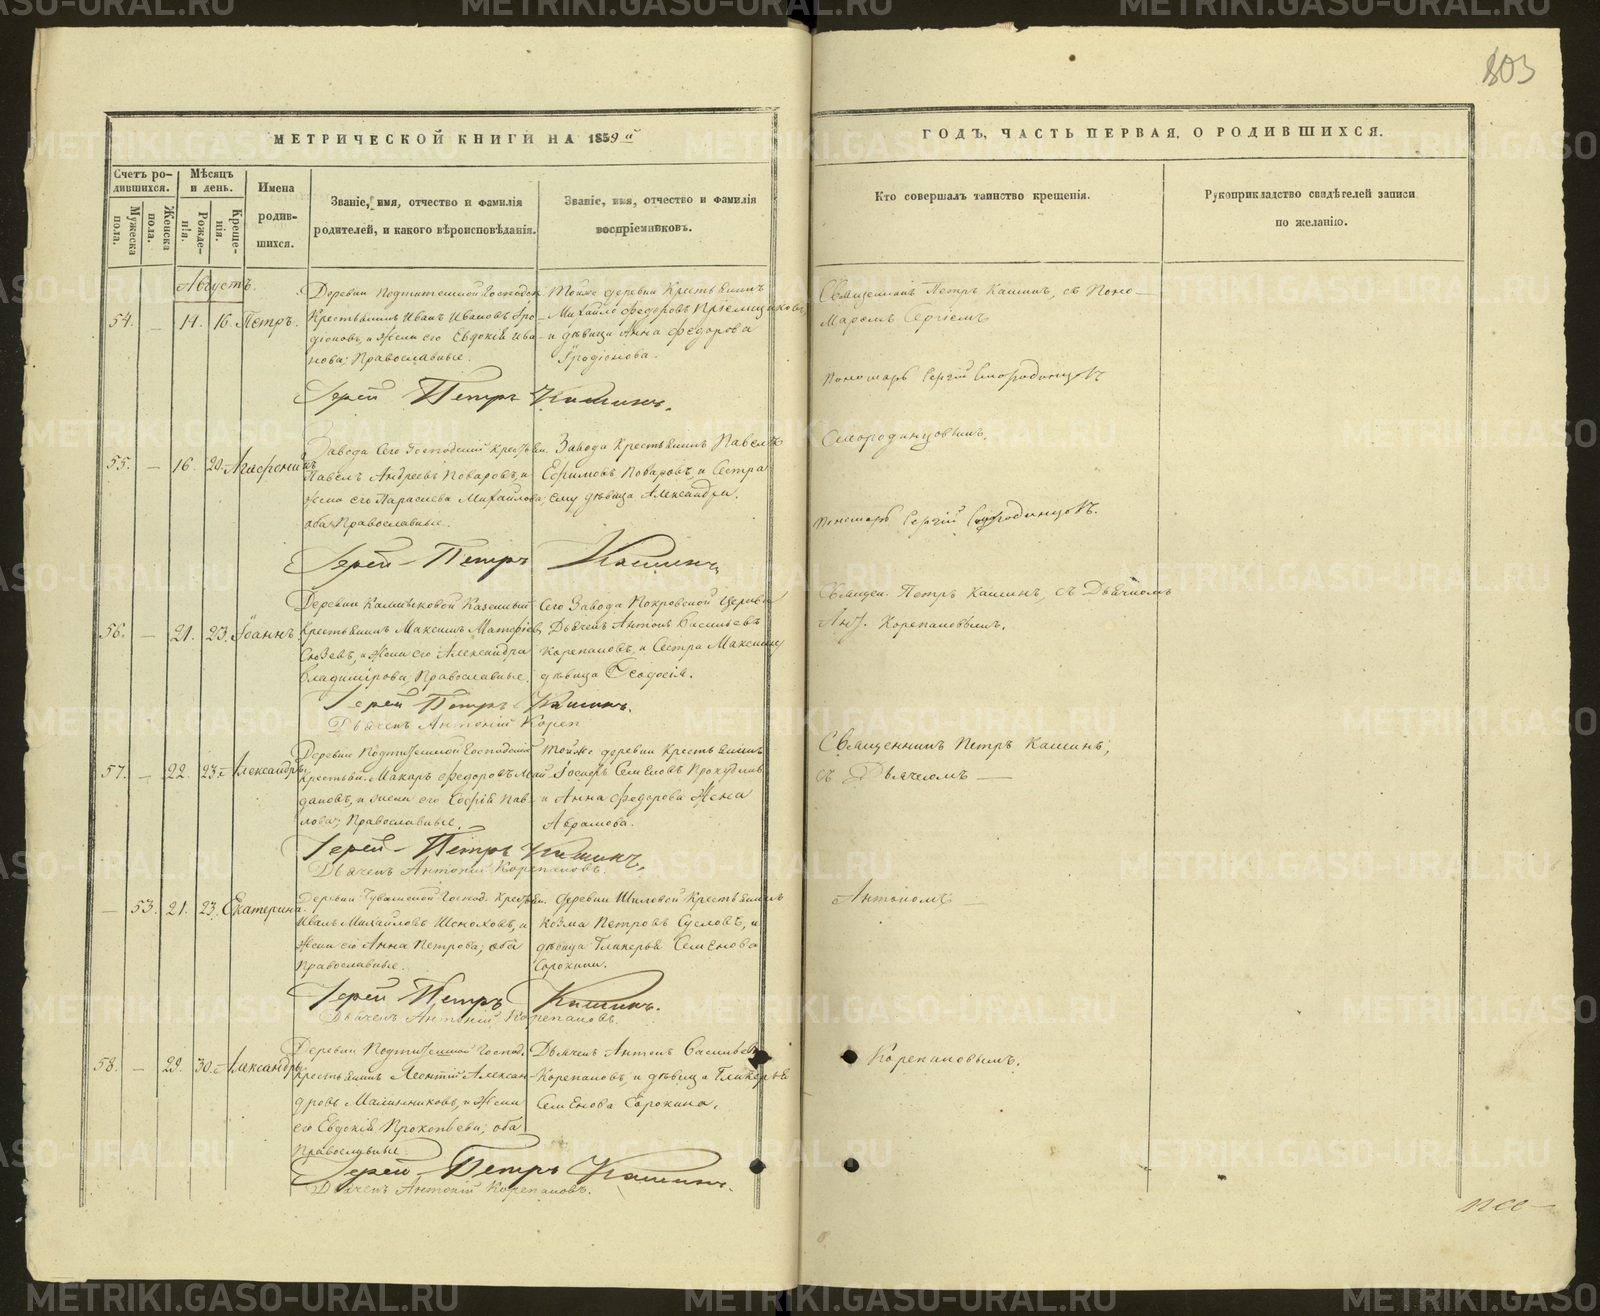 803
МЕТРИЧЕСКОЙ КНИГИ НА 1859 й
ГОДЪ, ЧАСТЬ ПЕРВАЯ, О РОДИВШИХСЯ.
Счетъ ро-
дившихся.
Мужеска
пола.
Женска
пола.
Мѣсяцъ
и день.
Рожде-
нія.
Креще-
нія.
Имена
родив-
шихся.
Званіе, имя, отчество и фамилія
родителей, и какого вѣроисповѣданія.
Званіе, имя, отчество и фамилія
воспріемниковъ.
Кто совершалъ таинство крещенія.
Рукоприкладство свидѣтелей записи
по желанію.
Августъ.
54. — 14. 16. Петръ.
Деревни Господск.
Крестьянинъ Иванъ Ивановъ Гро-
діоновъ, и жена его Евдокія Ива-
нова; Православные.
Тойже деревни Крестьянинъ
Михайло Федоровъ Пріемщиковъ,
и дѣвица Анна Федорова
Гродіонова.
Священникъ Петръ Кашинъ, съ Поно-
маремъ Сергіемъ
Іерей Петръ Кашинъ.
Пономарь Сергій Смородинцовъ
55. — 16. 20.
Завода Сего Господскій Крестьян.
Павелъ Андреевъ Поваровъ, и
жена его Параскева Михайлова,
оба Православные.
Завода Крестьянинъ Павелъ
Ефимовъ Поваровъ, и Сестра
ему дѣвица Александра.
Смородинцовымъ.
Іерей Петръ Кашинъ
Пономарь Сергій Смородинцовъ.
56. — 21. 23. Іоаннъ
Деревни Казенный
Крестьянинъ Максимъ Матфіевъ
Сюзевъ, и жена его Александра
Владимірова, Православные.
Сего Завода Покровской Церкви
Дьячекъ Антонъ Васильевъ
Корепановъ, и Сестра Максиму
дѣвица Феодосія.
Священ. Петръ Кашинъ, съ Дьячкомъ
Ант. Корепановымъ.
Іерей Петръ Кашинъ.
Дьячекъ Антоній Кореп
57. — 22. 23. Александръ
Деревни Господскій
Крестьян. Макаръ Федоровъ
дановъ, и жена его Софія Пав-
лова; Православные.
Тойже деревни Крестьянинъ
Іосифъ Семеновъ
и Анна Федорова Жена
Абрамова.
Священникъ Петръ Кашинъ,
съ Дьячкомъ —
Іерей Петръ Кашинъ,
Дьячекъ Антоній Корепановъ.
— 53. 21. 23. Екатерина
Деревни Господ. Крестьян.
Иванъ Михайловъ Шснохов, и
Жена его Анна Петрова; оба
Православные.
Деревни Шиловой Крестьянинъ
Козма Петровъ Сусловъ, и
дѣвица Гликерья Семенова
Сорокина.
Антоніемъ —
Іерей Петръ Кашинъ.
Дьячекъ Антоній Корепановъ.
58. — 29. 30. Александръ
Деревни Господ.
Крестьянинъ Леонтій Алексан-
дровъ Масленниковъ, и Жена
его Евдокія Прокопьева; оба
Православные.
Дьячекъ Антонъ Васильевъ
Корепановъ, и дѣвица Гликерья
Семенова Сорокина.
Корепановымъ.
Іерей Петръ Кашинъ.
Дьячекъ Антоній Корепановъ.
METRIKI.GASO-URAL.RU